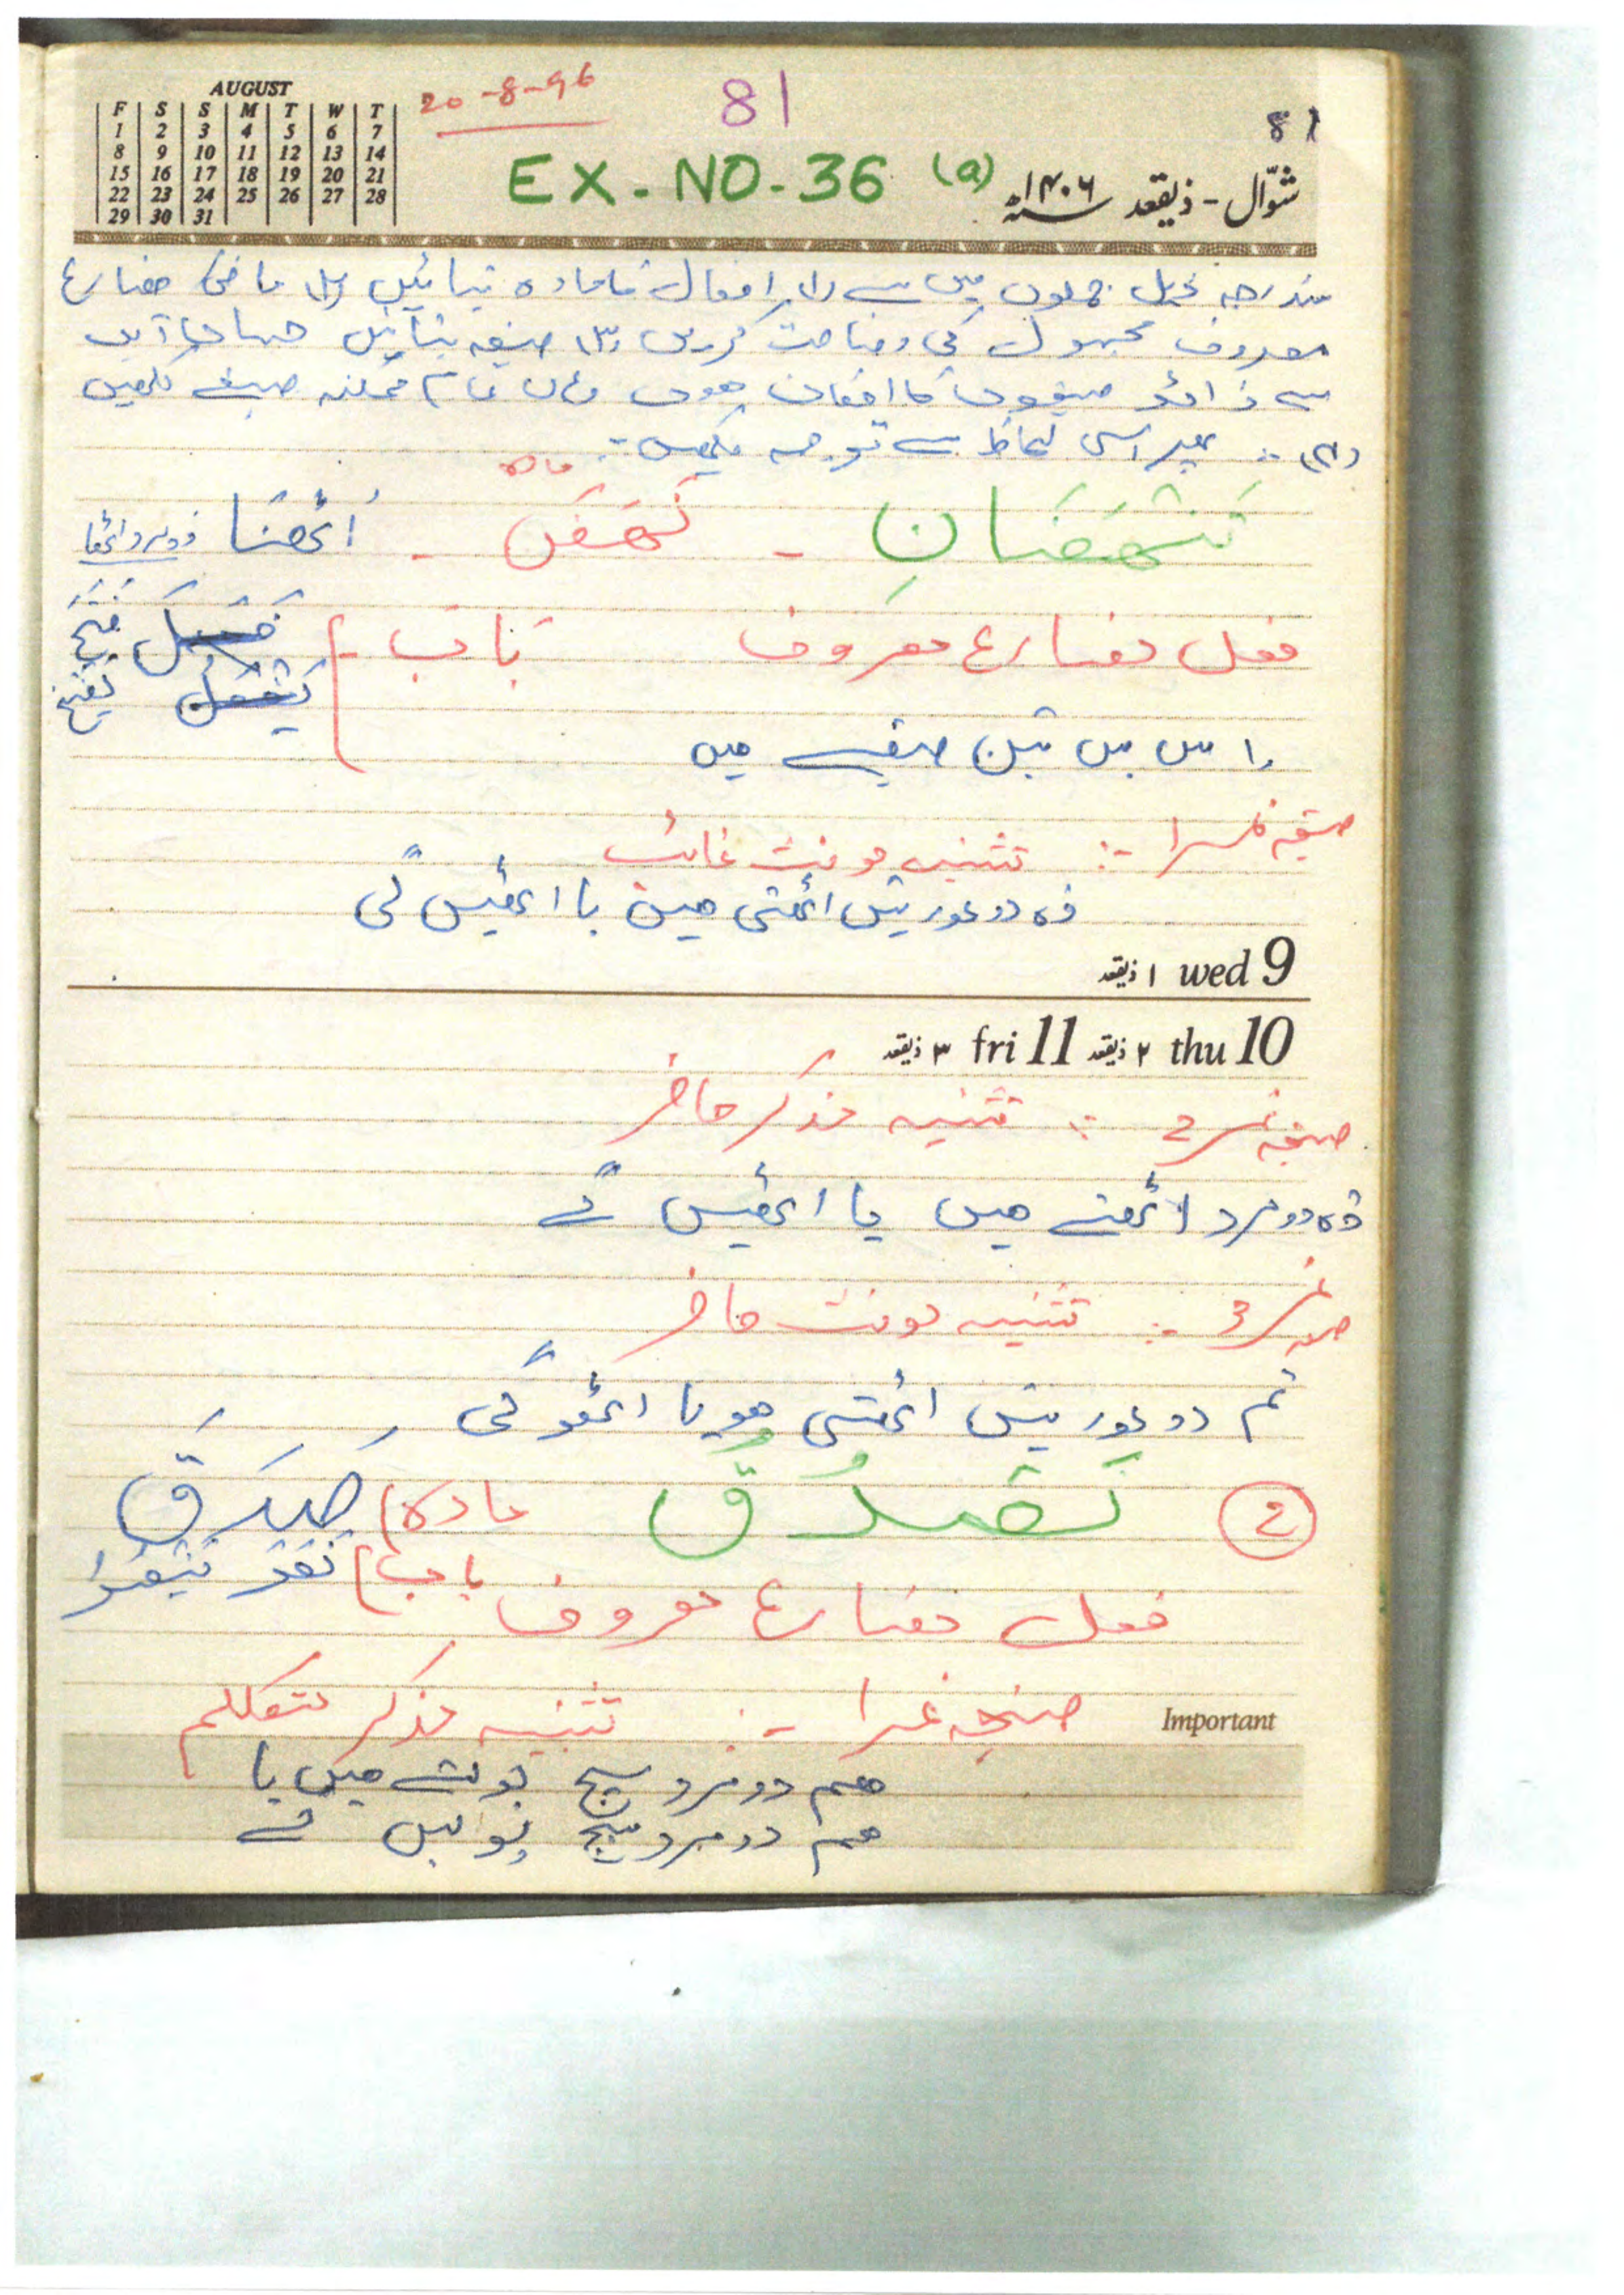 AUGUST
F S S M T W T
1 2 3 4 5 6 7
8 9 10 11 12 13 14
15 16 17 18 19 20 21
22 23 24 25 26 27 28
29 30 31
20-8-96
81
81
EX-NO-36 (a)
شوّال - ذیقعد ۱۴۰۶
مندرجہ ذیل جملوں میں سے (۱) افعال کا مادہ بتائیں (۲) ماضی مضارع
معروف مجہول کی وضاحت کریں (۳) صیغہ بتائیں جہاں ایک
سے زائد صیغوں کا امکان ہو وہاں تمام ممکنہ صیغے لکھیں
(۴) :- پھر اسی لحاظ سے ترجمہ لکھیں :-
مادہ
تَنْهَضَانِ - نَهَضَ - اُٹھنا
فعل مضارع معروف باب فَتَحَ
يَفْتَحُ
اس میں تین صیغے ہیں
صیغہ نمبر 1 :- تثنیہ مونث غائب
وہ دو عورتیں اٹھتی ہیں یا اٹھیں گی
۱ ذیقعد wed 9
۳ ذیقعد fri 11 ۲ ذیقعد thu 10
صیغہ نمبر 2 :- تثنیہ مذکر حاضر
وہ دو مرد اٹھتے ہیں یا اٹھیں گے
صیغہ نمبر 3 :- تثنیہ مونث حاضر
تم دو عورتیں اٹھتی ہو یا اٹھو گی
2 نَصْدُقُ مادہ صَدَقَ
فعل مضارع معروف باب
صیغہ نمبر 1 :- تثنیہ مذکر متکلم
Important
ہم دو مرد سچ بولتے ہیں یا
ہم دو مرد سچ بولیں گے